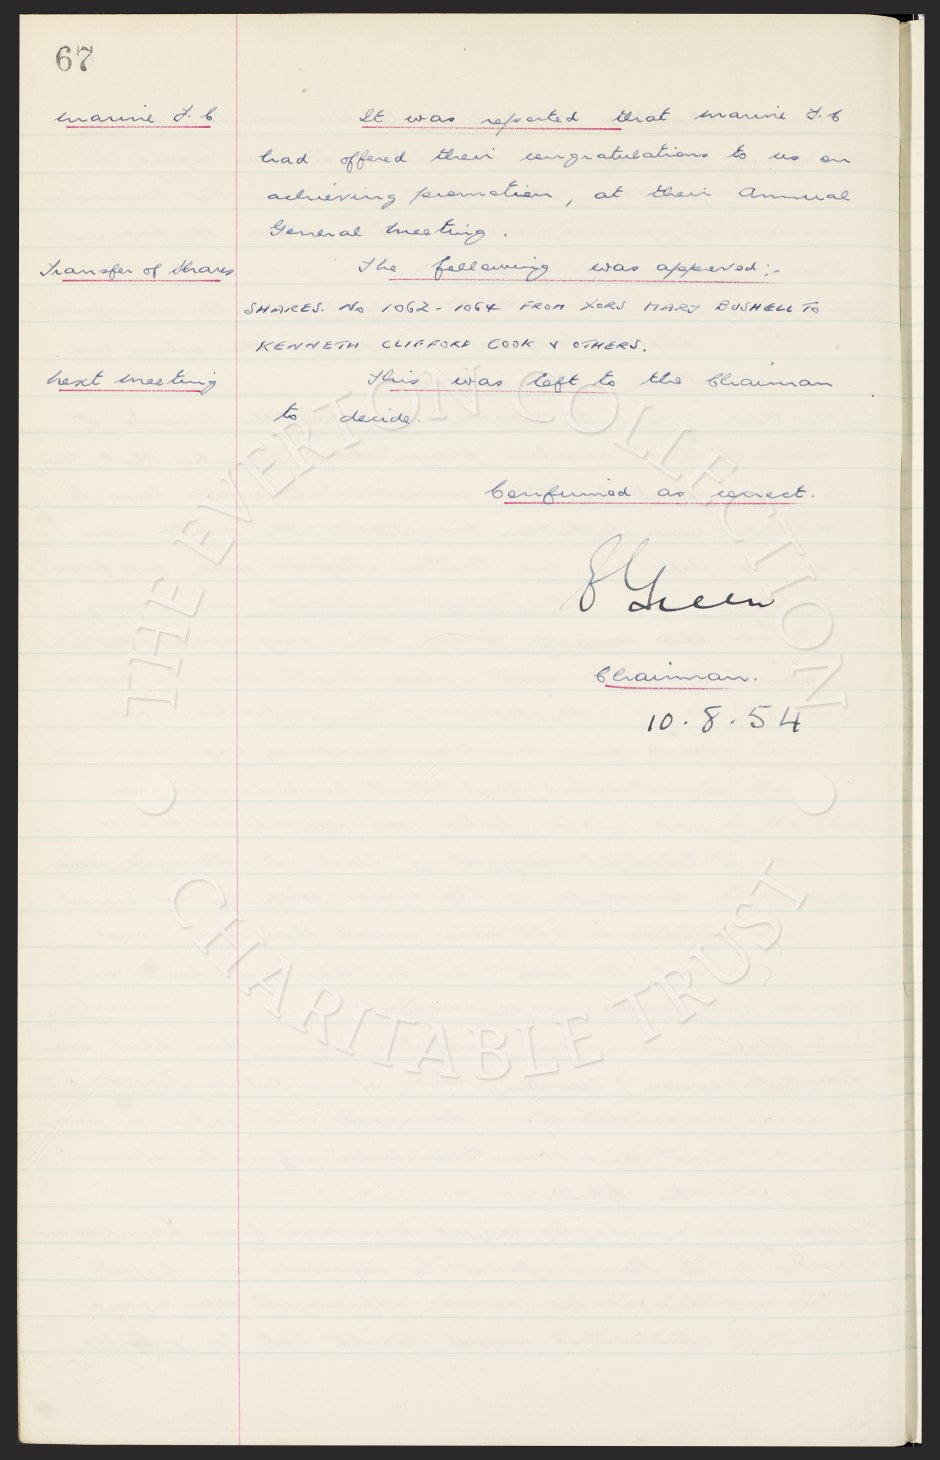 67
Marine F.C It was reported that Marine F.C
had offered their congratulations to us on
achieving promotion, at their Annual
General Meeting.
Transfer of Shares The following was approved:-
SHARES. No 1062-1064 FROM XORS MARY BUSHELL TO
KENNETH CLIFFORD COOK & OTHERS.
Next Meeting This was left to the Chairman
to decide.
Confirmed as correct.
E Green
Chairman.
10.8.54
THE EVERTON COLLECTION
CHARITABLE TRUST